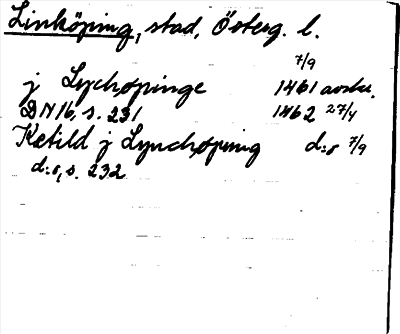 Linköping, stad, Österg. l.
7/9
j Lychøpinge 1461 avskr.
DN 16, s. 231 1462 27/4
Ketild j Lynchøping d:o 7/9
d:o, s. 232